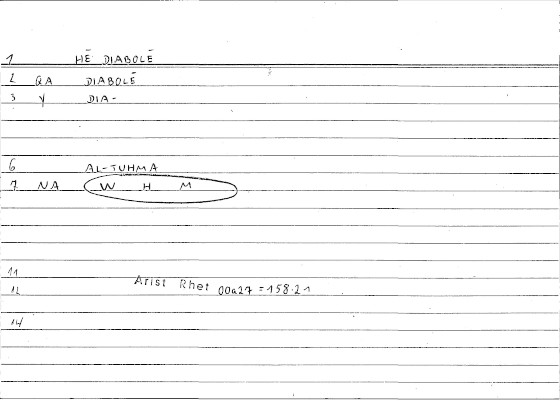 1 HĒ DIABOLĒ
2 QA DIABOLĒ
3 γ DIA-
6 AL-TUHMA
7 NA W H M
11
12 Arist Rhet 00a27 = 158.21
14